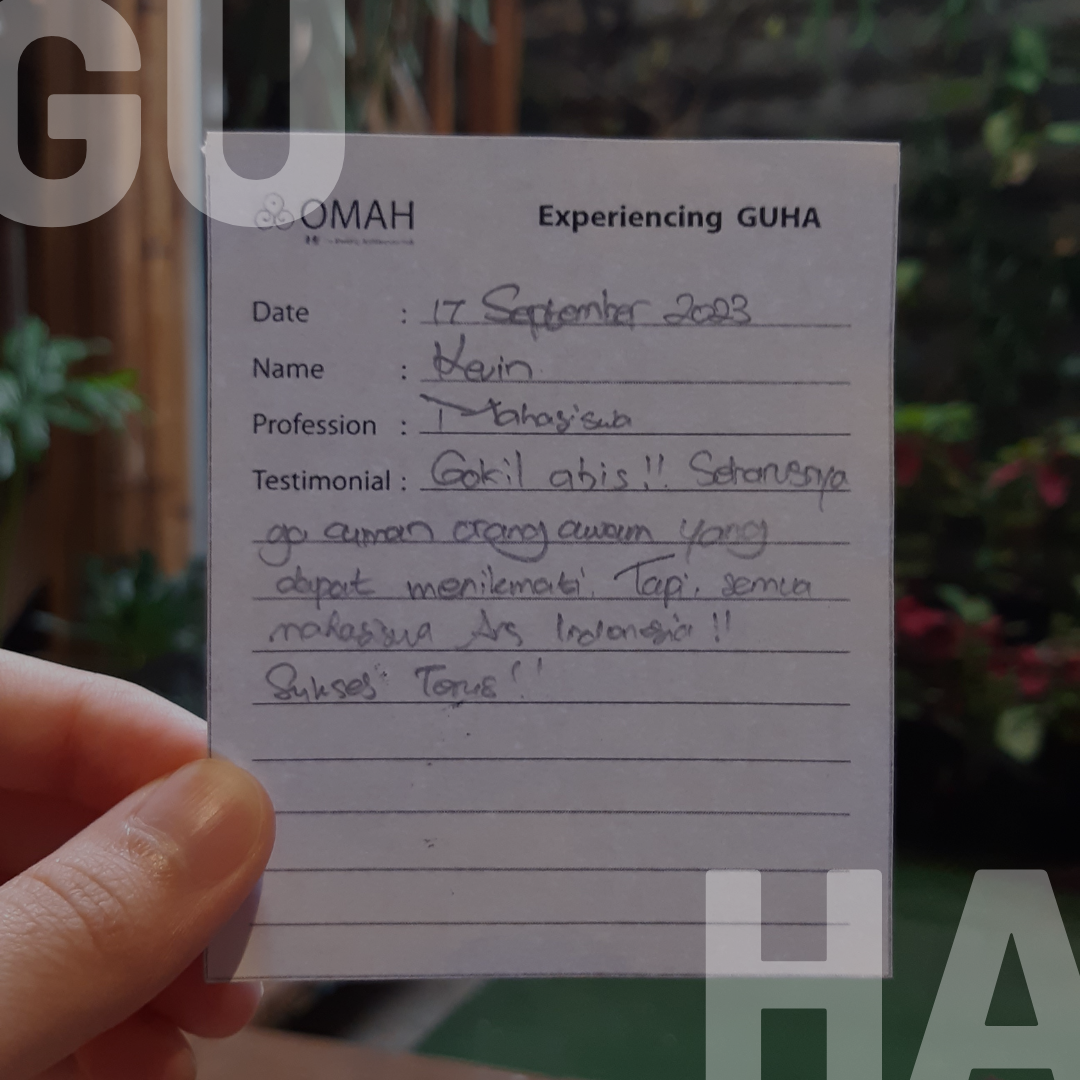 GU
OMAH
Experiencing GUHA
Date : 17 September 2023
Name : Kevin
Profession : Mahasiswa
Testimonial : Gokil abis!! Seharusnya
ga cuman orang awam yang
dapat menikmati. Tapi, semua
mahasiswa Ars Indonesia!!
Sukses Terus!!
HA